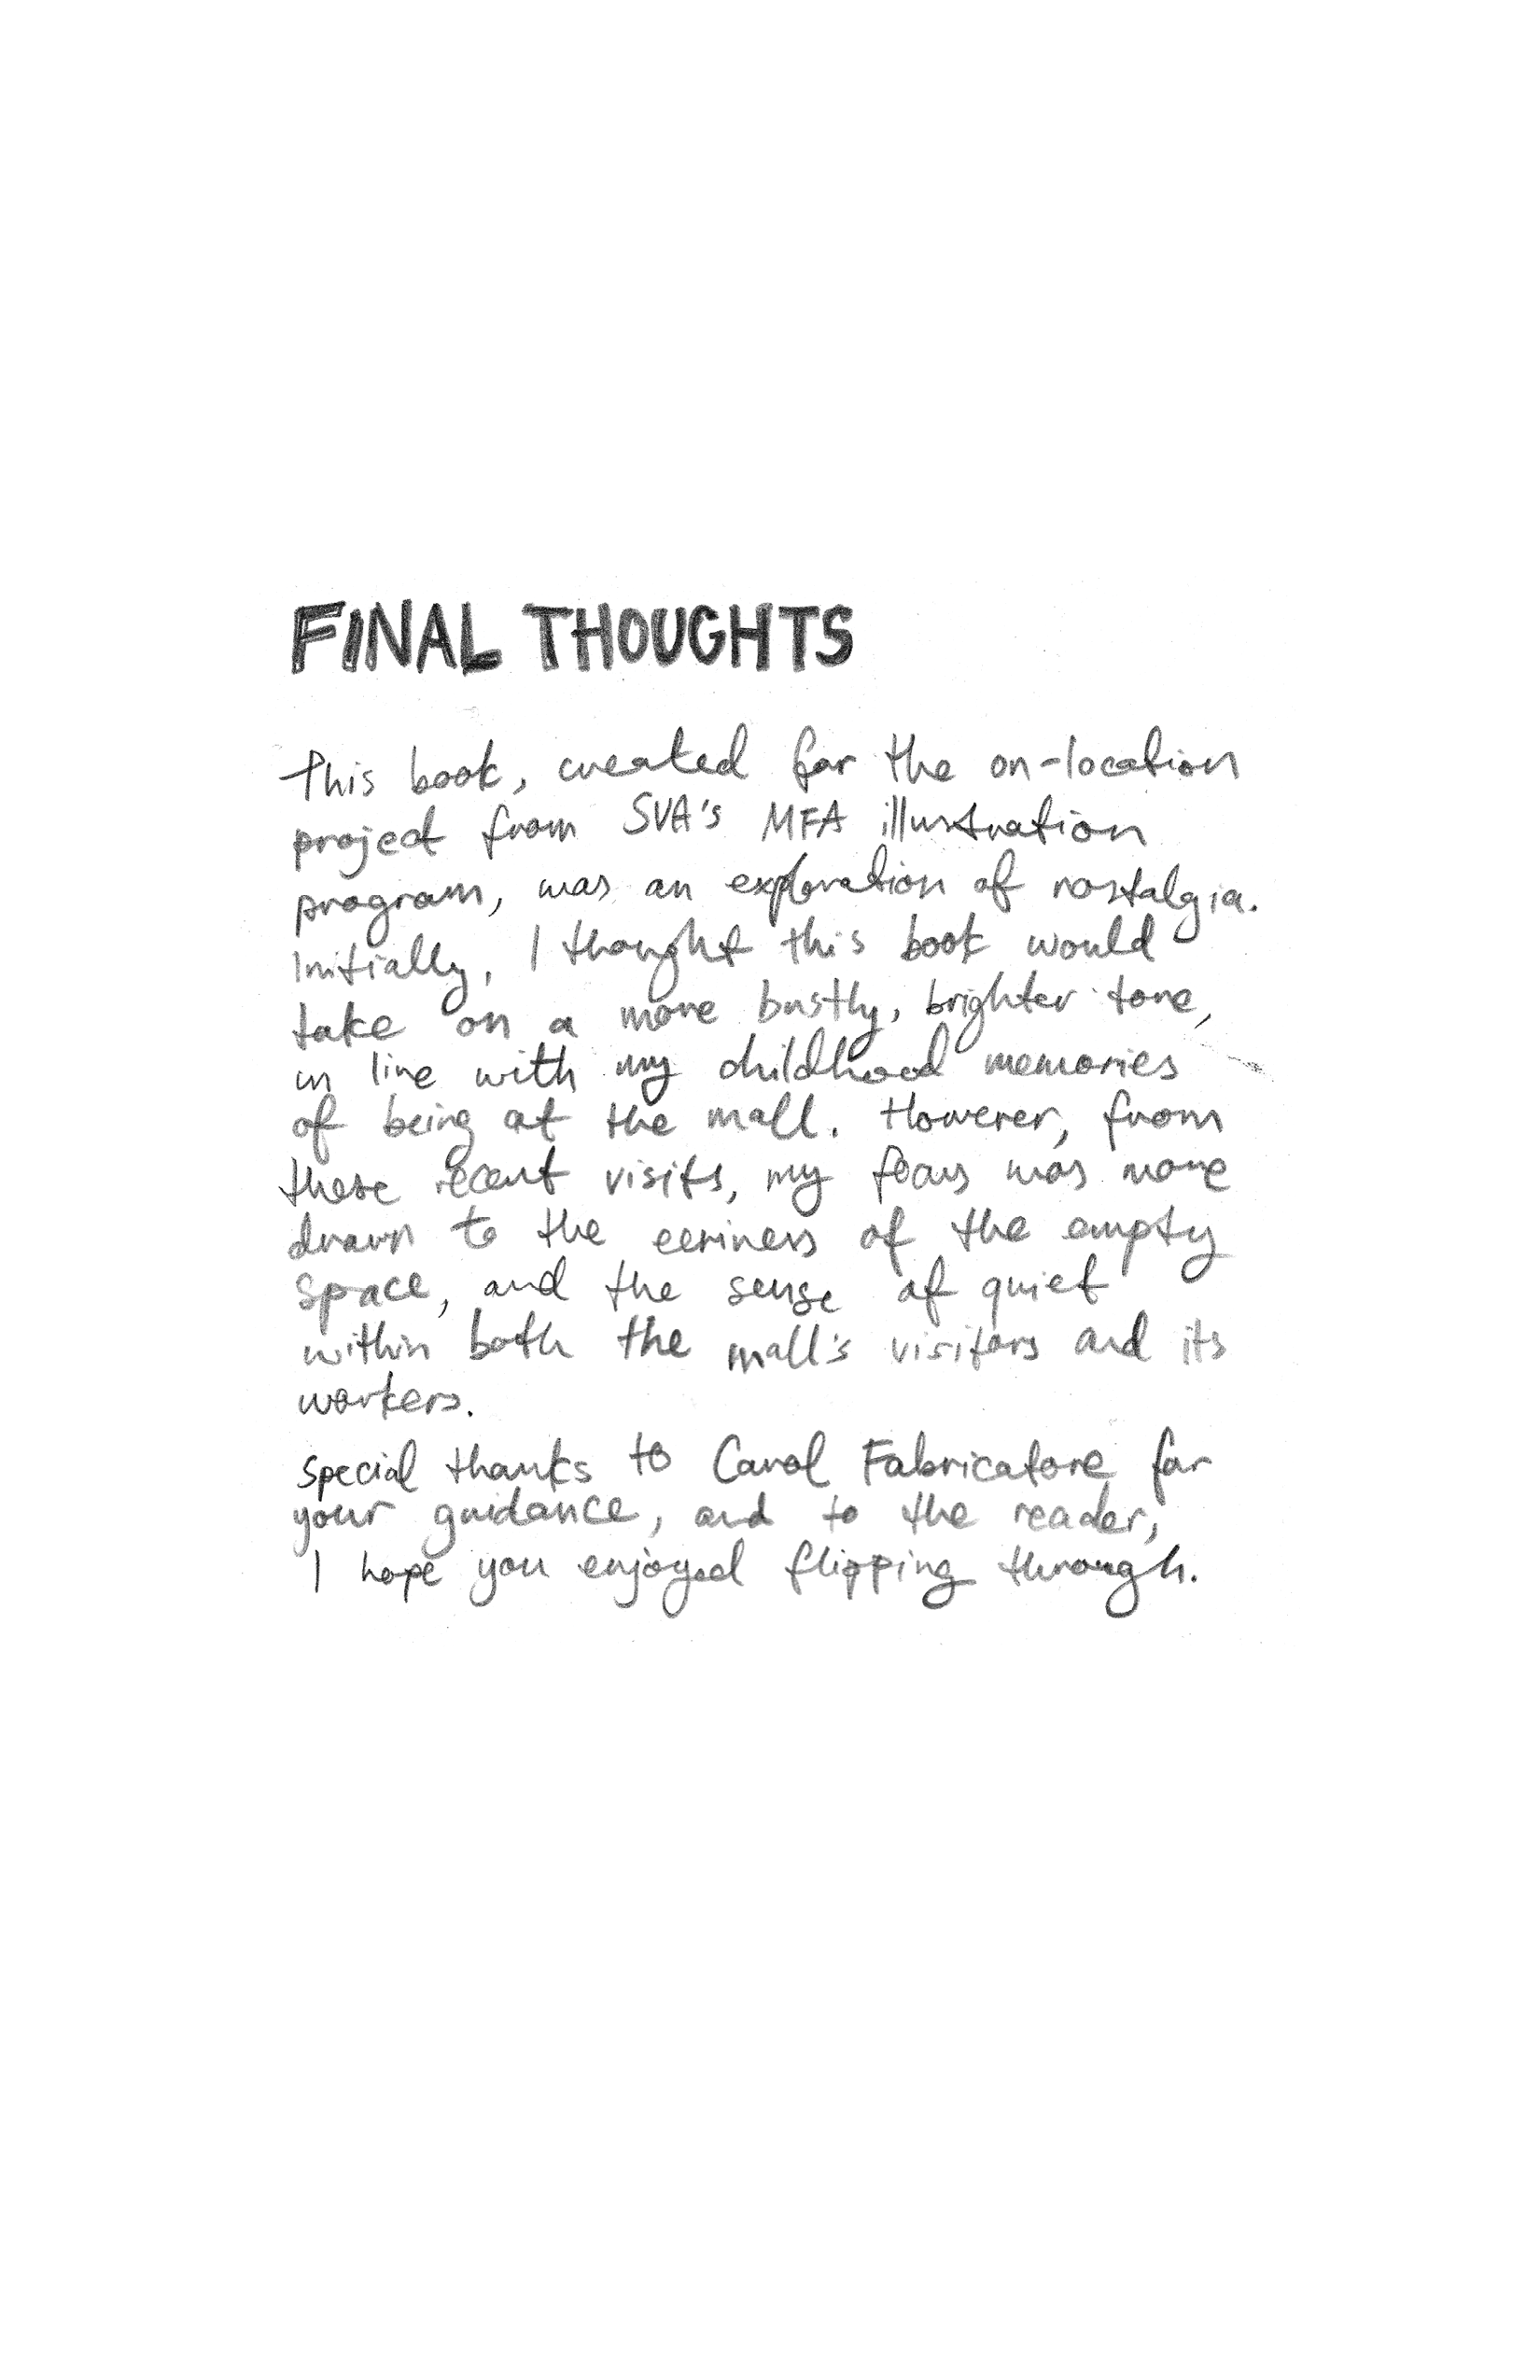 FINAL THOUGHTS
This book, created for the on-location
project from SVA's MFA illustration
program, was an exploration of nostalgia.
Initially, I thought this book would
take on a more bustly, brighter tone,
in line with my childhood memories
of being at the mall. However, from
these recent visits, my focus was more
drawn to the eeriness of the empty
space, and the sense of quiet
within both the mall's visitors and its
workers.
special thanks to Carol Fabricatore for
your guidance, and to the reader,
I hope you enjoyed flipping through.